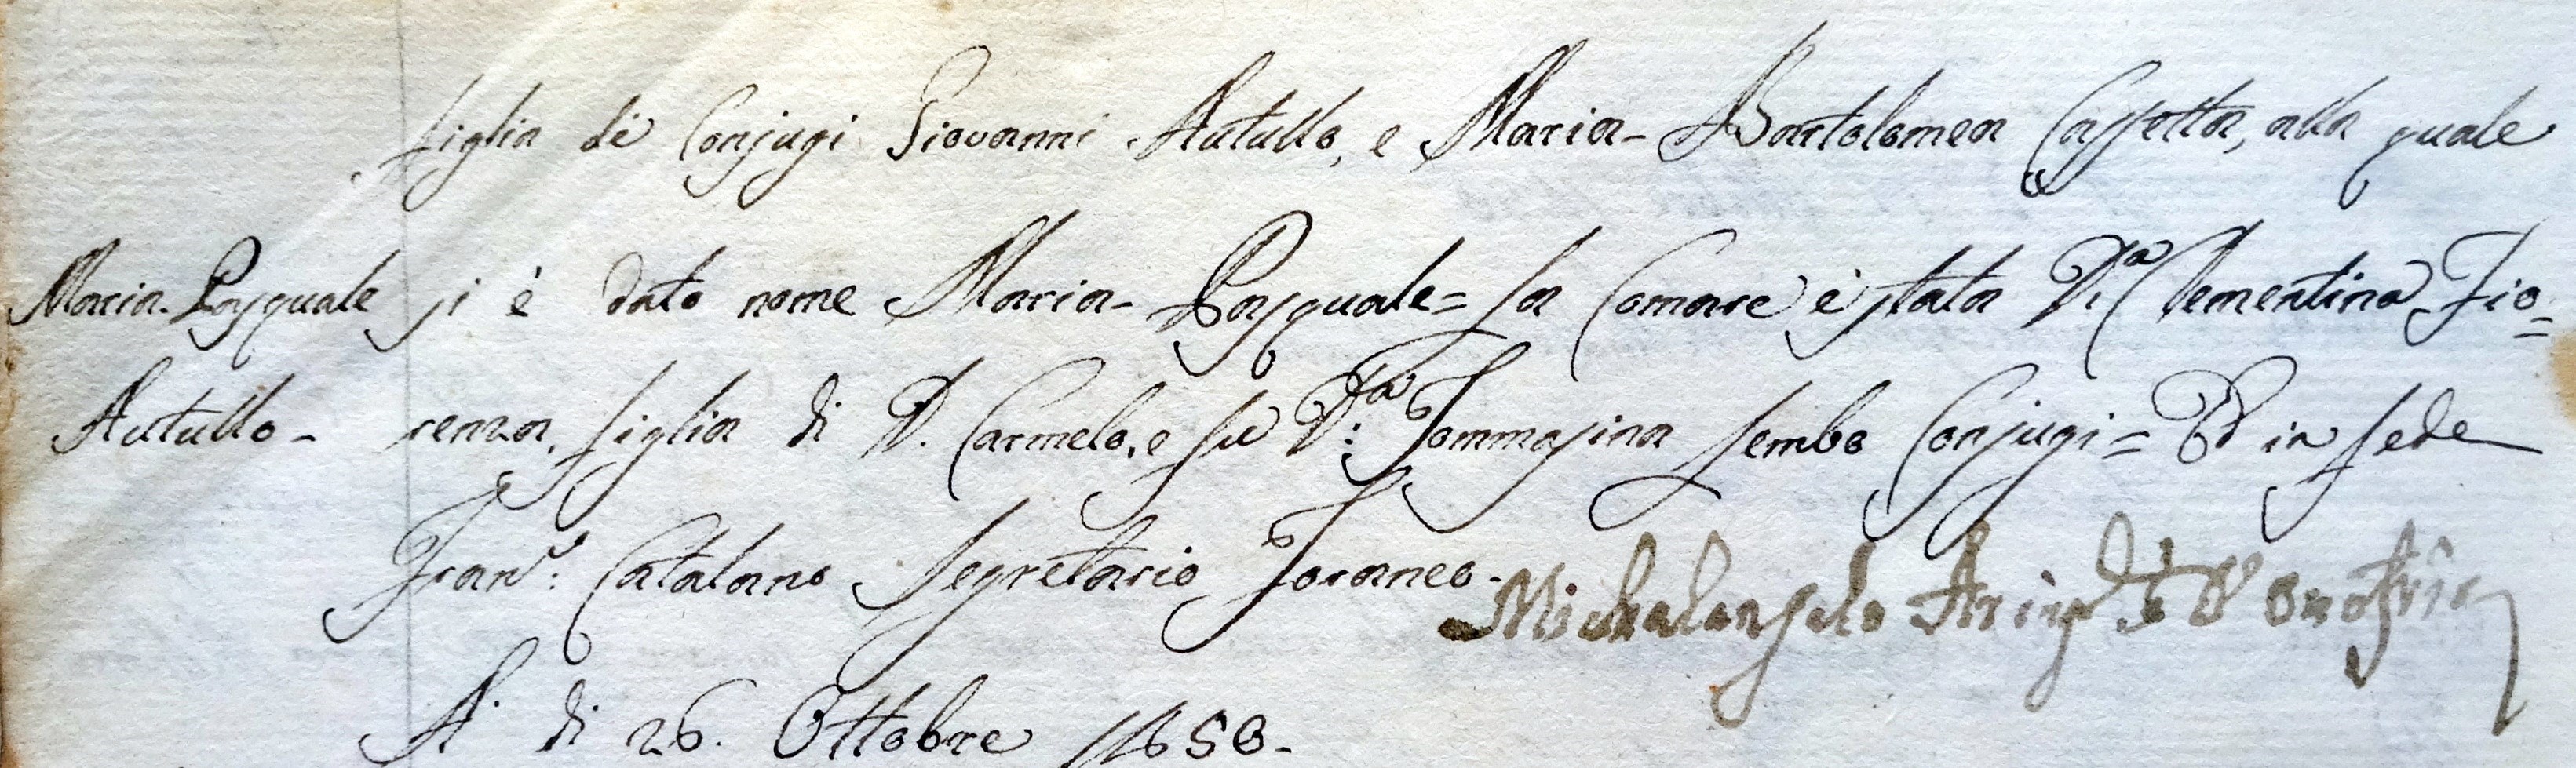 figlia de' Conjugi Giovanni Autullo, e Maria- Bartolomea Cassetta, alla quale
Maria-Pasquale si è dato nome Maria- Pasquale= La Comare è stata D.a Clementina Fio=
Autullo- renza, figlia di D. Carmelo, e fu D.a Tommasina Sembo Conjugi= Ed in fede
Fran.o: Catalano Segretario Foraneo- Michelangelo Arip.e D'Onofrio
A' di 26. Ottobre 1858-